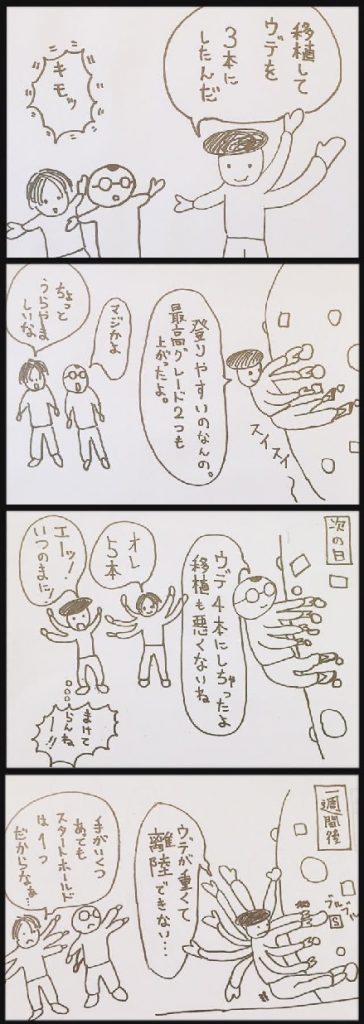 移植して
ウデを
3本に
したんだ
キモッ
登りやすいのなんの。
最高グレード2つも
上がたよ。
スイスイ
マジかよ
ちょっと
うらやま
しいな
次の日
ウデ4本にしちゃったよ
移植も悪くないね
オレ
5本
エーッ!
いつのまにッ!
まけて
らんねー!!
一週間後
ウデが重くて
離陸できない…
プルプル
S
手がいくつ
あても
スタートホールド
は1つ
だからなぁ…